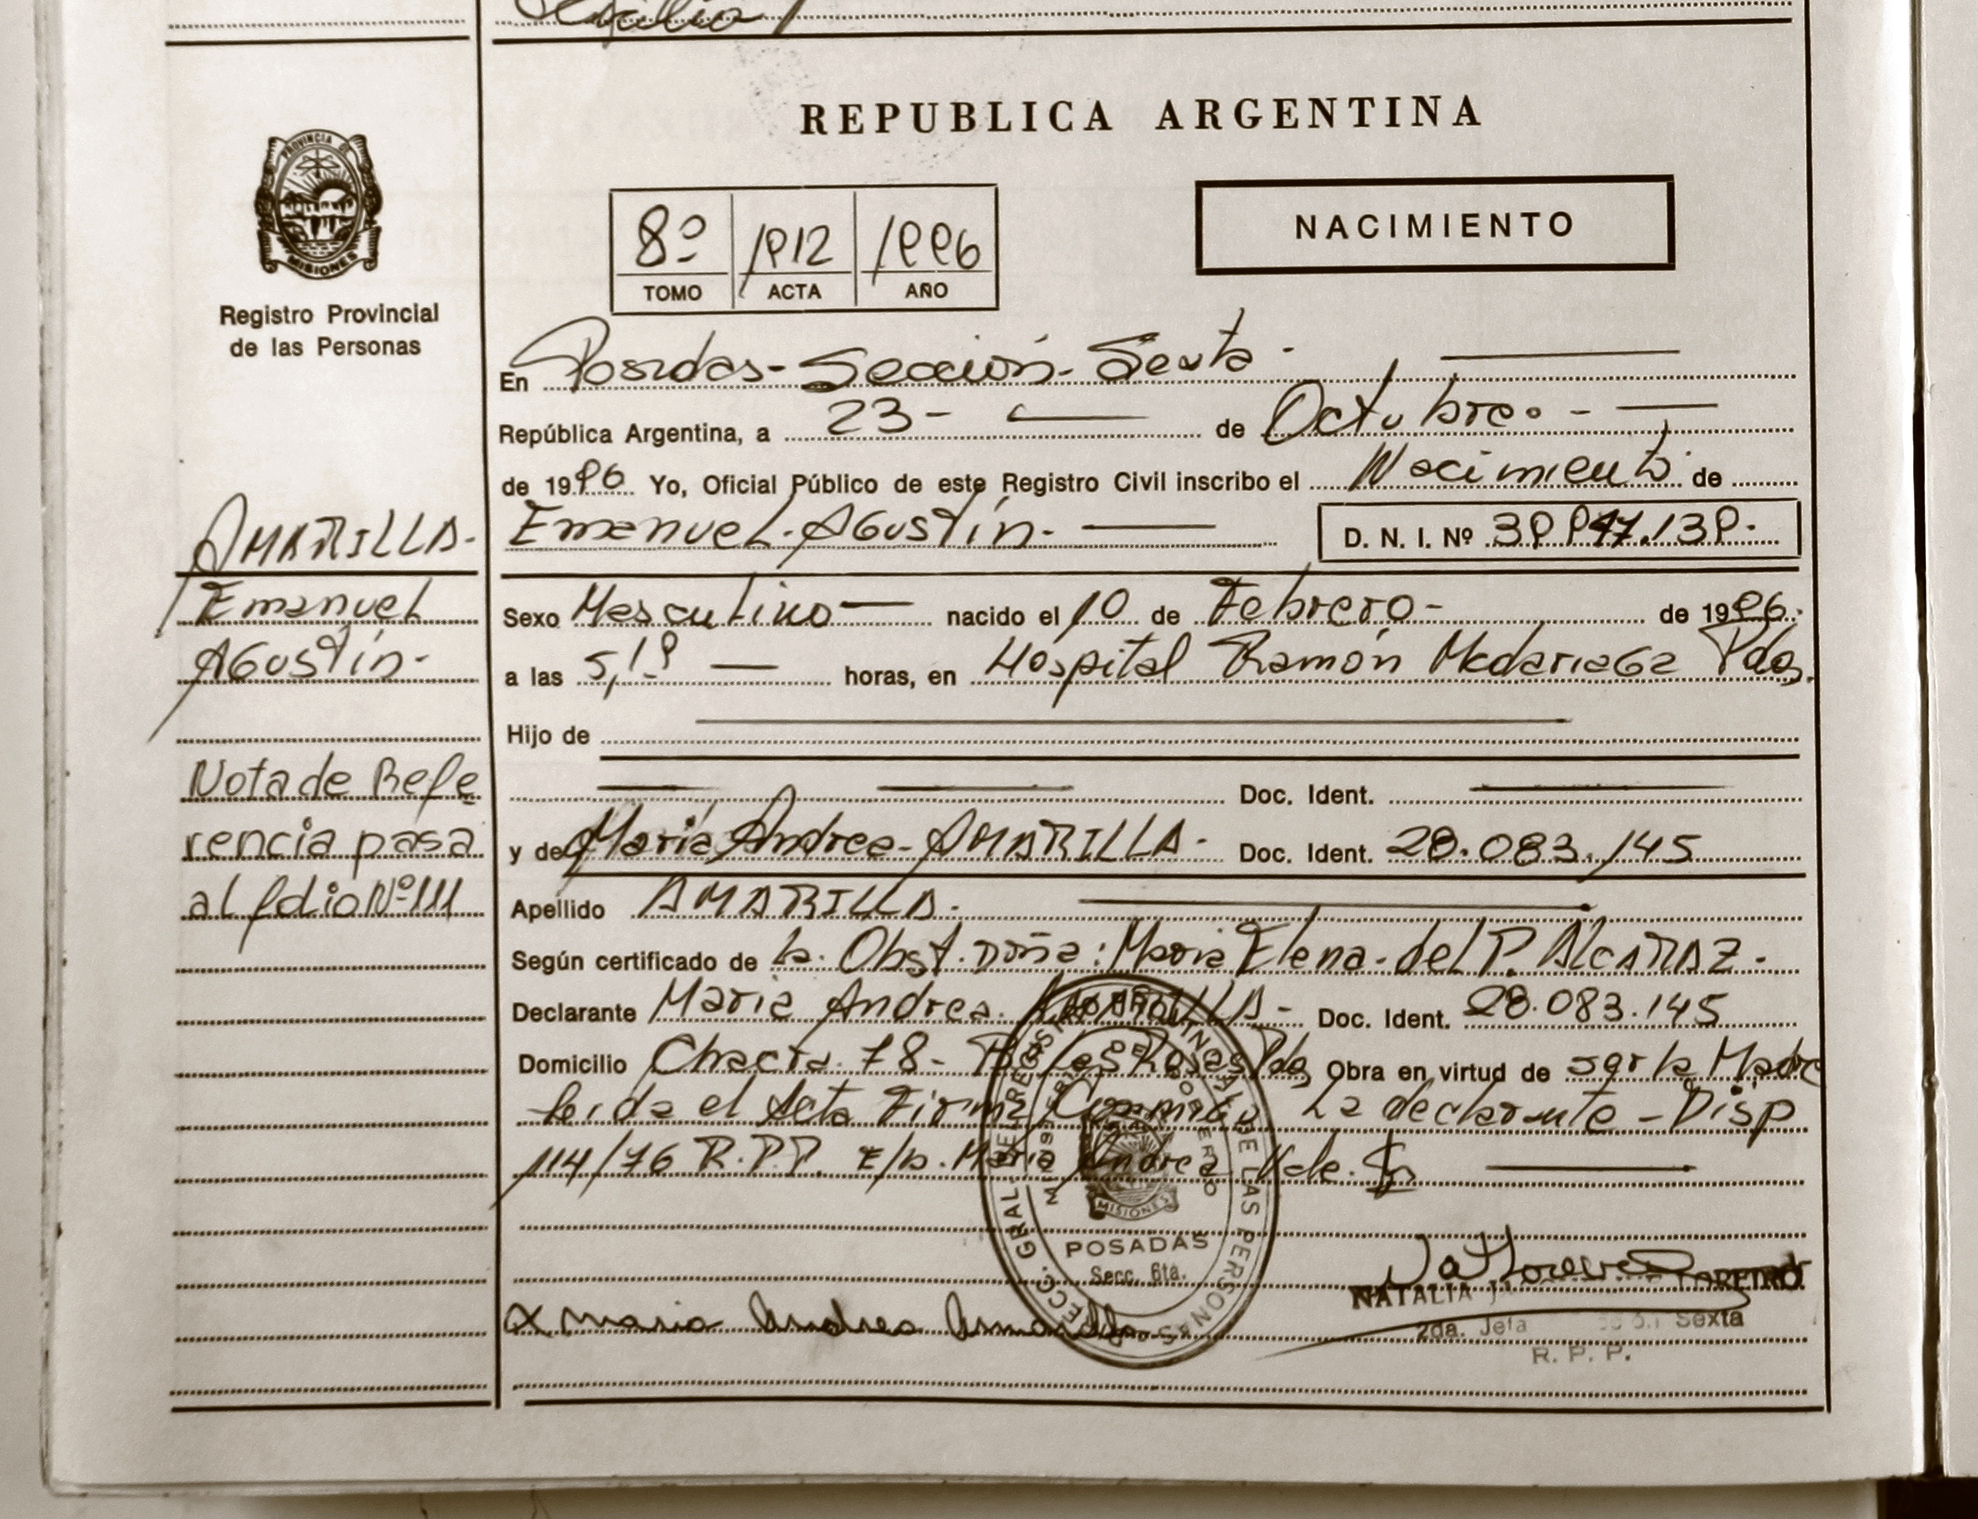 REPUBLICA ARGENTINA
PROVINCIA DE
MISIONES
Registro Provincial
de las Personas
8º 1912 1996
TOMO ACTA AÑO
NACIMIENTO
En Posadas - Sección - Sexta -
República Argentina, a 23 - de Octubre. -
de 1996 Yo, Oficial Público de este Registro Civil inscribo el Nacimiento de
Emanuel - Agustín. - D. N. I. Nº 39.947.139.
AMARILLA.
Emanuel
Agustín.
Sexo Masculino nacido el 10 de Febrero - de 1996.
a las 5,19 horas, en Hospital Ramón Madariaga Pdas.
Hijo de
Doc. Ident.
y de Maria Andrea - AMARILLA - Doc. Ident. 28.083.145
Nota de Refe
rencia pasa
al folio Nº 111
Apellido AMARILLA.
Según certificado de la Obst. doña: Maria Elena - del P. ALCARAZ.
Declarante Maria Andrea AMARILLA - Doc. Ident. 28.083.145
Domicilio Chacra 78 - Las Rosas Pdas Obra en virtud de ser la Madre
leida el Acta Firma La declarante - Disp
114/76 R.P.P. E/b. Maria Andrea Vale.
DIRECC. GRAL. DEL REGISTRO PROVINCIAL DE LAS PERSONAS
MINISTERIO DE GOBIERNO
MISIONES
POSADAS
Secc. 6ta.
X Maria Andrea Amarilla
NATALIA
2da. Jefa Sexta
R. P. P.